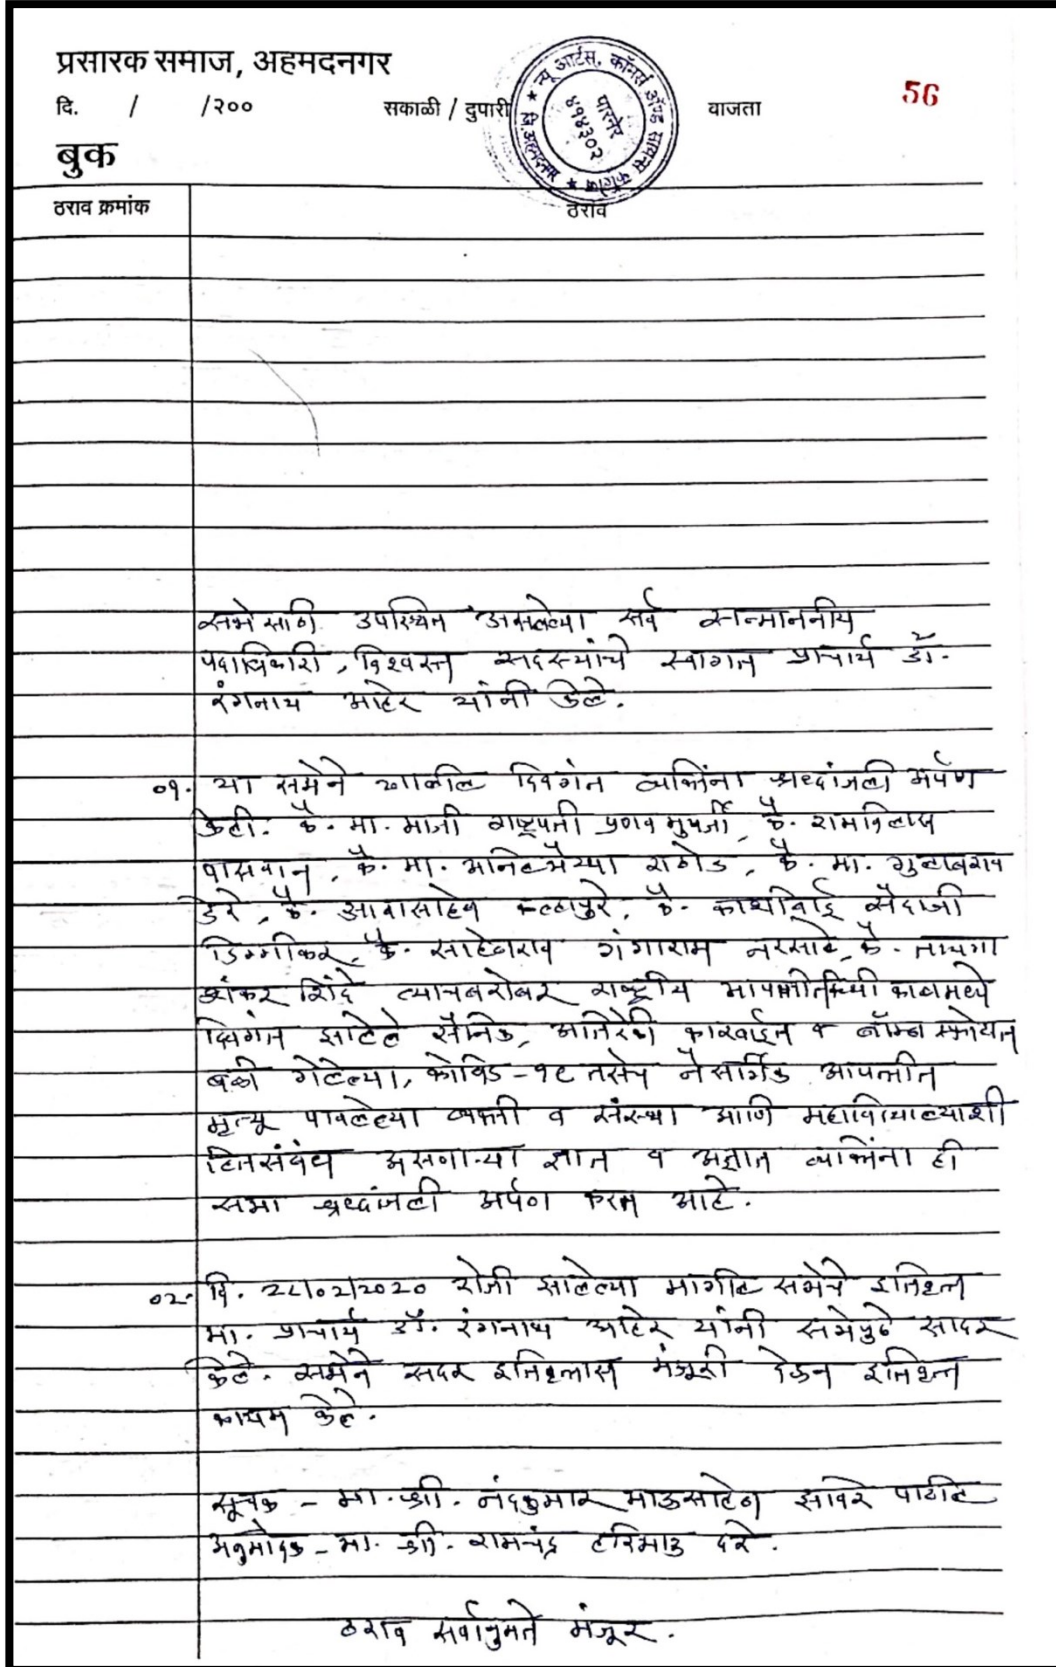 प्रसारक समाज, अहमदनगर
दि. / /२०० सकाळी / दुपारी वाजता 56
न्यू आर्टस्, कॉमर्स अॅण्ड सायन्स कॉलेज
पारनेर
४१४३०२
जि.अहमदनगर
बुक
ठराव क्रमांक ठराव
सभेसाठी उपस्थित असलेल्या सर्व सन्माननीय
पदाधिकारी, विश्वस्त सदस्यांचे स्वागत प्राचार्य डॉ.
रंगनाथ आहेर यांनी केले.
०१. या सभेने खालील दिवंगत व्यक्तिंना श्रध्दांजली अर्पण
केली. कै. मा. माजी राष्ट्रपती प्रणव मुखर्जी, कै. रामविलास
पासवान, कै. मा. अनिलभैय्या राठोड, कै. मा. गुलाबराव
डेरे, कै. आबासाहेब कै. सैदाजी
कै. साहेबराव गंगाराम नरसाळे, कै.
शंकर शिंदे त्याचबरोबर राष्ट्रीय
दिवंगत झालेले सैनिक, अतिरेकी कारवाईत व बॉम्ब स्फोटात
बळी गेलेल्या, कोविड-१९ तसेच नैसर्गिक आपत्तीत
मृत्यू पावलेल्या व्यक्ती व संस्था आणि महाविद्यालयाशी
हितसंबंध असणाऱ्या ज्ञात व अज्ञात व्यक्तिंना ही
सभा श्रध्दांजली अर्पण करत आहे.
०२. दि. 2८/०2/2०2० रोजी झालेल्या मागील सभेचे इतिवृत्त
मा. प्राचार्य डॉ. रंगनाथ आहेर यांनी सभेपुढे सादर
केले. सभेने सदर इतिवृत्तास मंजूरी देऊन इतिवृत्त
कायम केले.
सूचक - मा. श्री. नंदकुमार भाऊसाहेब झावरे पाटील
अनुमोदक - मा. श्री. रामचंद्र हरिभाऊ दरे.
ठराव सर्वानुमते मंजूर.